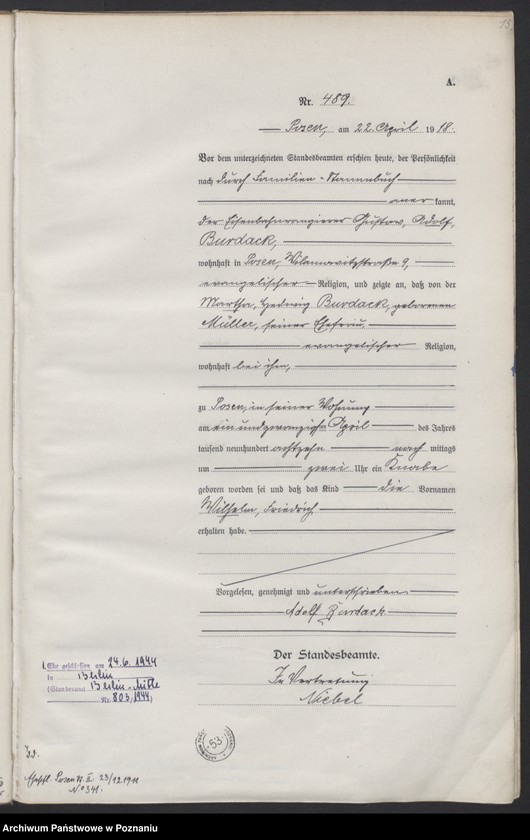 15
A.
Nr. 489.
Posen, am 22. April 1918.
Vor dem unterzeichneten Standesbeamten erschien heute, der Persönlichkeit
nach durch Familien-Stammbuch
aner kannt,
der Eisenbahnrangierer Gustav, Adolf,
Burdack,
wohnhaft in Posen, Wilamowitzstraße 9,
evangelischer Religion, und zeigte an, daß von der
Martha, Hedwig Burdack, geborenen
Müller, seiner Ehefrau,
evangelischer Religion,
wohnhaft bei ihm,
zu Posen, in seiner Wohnung
am einundzwanzigsten April des Jahres
tausend neunhundert achtzehn nach mittags
um zwei Uhr ein Knabe
geboren worden sei und daß das Kind die Vornamen
Wilhelm, Friedrich
erhalten habe.
Vorgelesen, genehmigt und unterschrieben
Adolf Burdack
Der Standesbeamte.
In Vertretung
Niebel
1. Ehe geschlossen am 24.6.1944
in Berlin
(Standesamt Berlin-Mitte
Nr. 803/1944)
53
Eheschl. Posen St. II. 23/12.1911
No 341.
Archiwum Państwowe w Poznaniu